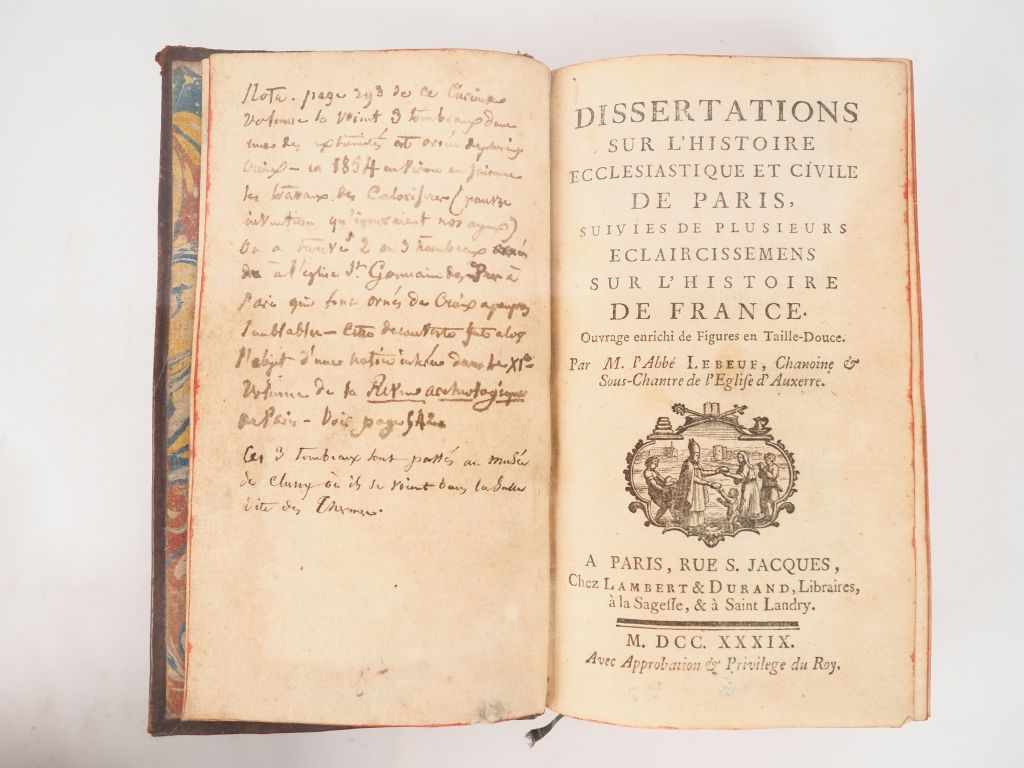 Nota. page 293 de ce Curieux
volume se voient 3 tombeaux dans
une des extrémités et ornés de plusieurs
Croix – en 1854 en faisant
les travaux des Calorifères (pauvre
invention qu'ignoraient nos ayeux)
On a trouvé 2 ou 3 tombeaux
à l'eglise St. Germain des Prés à
Paris qui sont ornés de Croix apeupres
Semblables – Cette découverte fut alors
l'objet d'une notice insérée dans le XIe
Volume de la Revue archéologique
de Paris – Voir page 542
Ces 3 tombeaux sont passés au musée
de Cluny où ils se voient dans la Salle
dite des Thermes.
DISSERTATIONS
SUR L'HISTOIRE
ECCLESIASTIQUE ET CIVILE
DE PARIS,
SUIVIES DE PLUSIEURS
ECLAIRCISSEMENS
SUR L'HISTOIRE
DE FRANCE.
Ouvrage enrichi de Figures en Taille-Douce.
Par M. l'Abbé LEBEUF, Chanoine &
Sous-Chantre de l'Eglise d'Auxerre.
A PARIS, RUE S. JACQUES,
Chez LAMBERT & DURAND, Libraires,
à la Sagesse, & à Saint Landry.
M. DCC. XXXIX.
Avec Approbation & Privilege du Roy.